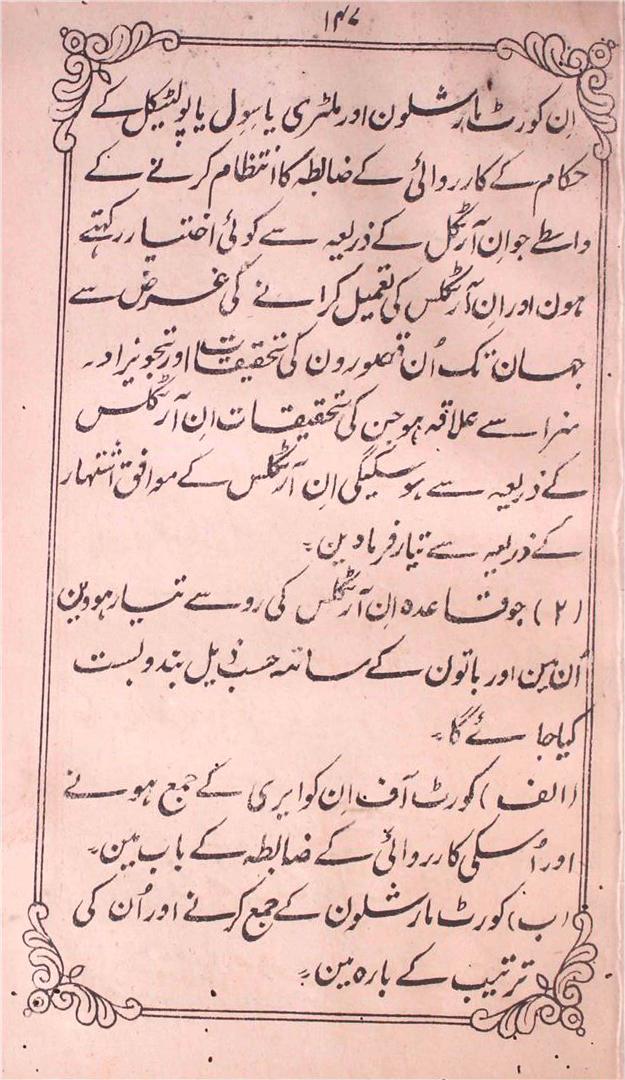 ۱۴۷
اِن کورٹ مارشلون اور ملٹری یا سِوِل یا پولٹیکل کے
حکام کے کارروائی کے ضابطہ کا انتظام کرنے کے
واسطے جو اِن آرٹکل کے ذریعہ سے کوئی اختیار رکہتے
ہون اور اِن آرٹکلس کی تعمیل کرانے کی غرض سے
جہان تک اُن قصورون کی تحقیقات اور تجویز اد۔
سزا سے علاقہ ہو جن کی تحقیقات اِن آرٹکلس
کے ذریعہ سے ہو سکیگی اِن آرٹکلس کے موافق اشتہار
کے ذریعہ سے تیار فرما دین۔
(۲) جو قاعدہ اِن آرٹکلس کی رو سے تیار ہووین
اُن مین اور باتون کے ساتہہ حسب ذیل بندوبست
کیا جائے گا۔
(الف) کورٹ آف اِن کوایری کے جمع ہونے
اور اُسکی کارروائی کے ضابطہ کے باب مین۔
(ب) کورٹ مارشلون کے جمع کرنے اور اُن کی
ترتیب کے بارہ مین۔